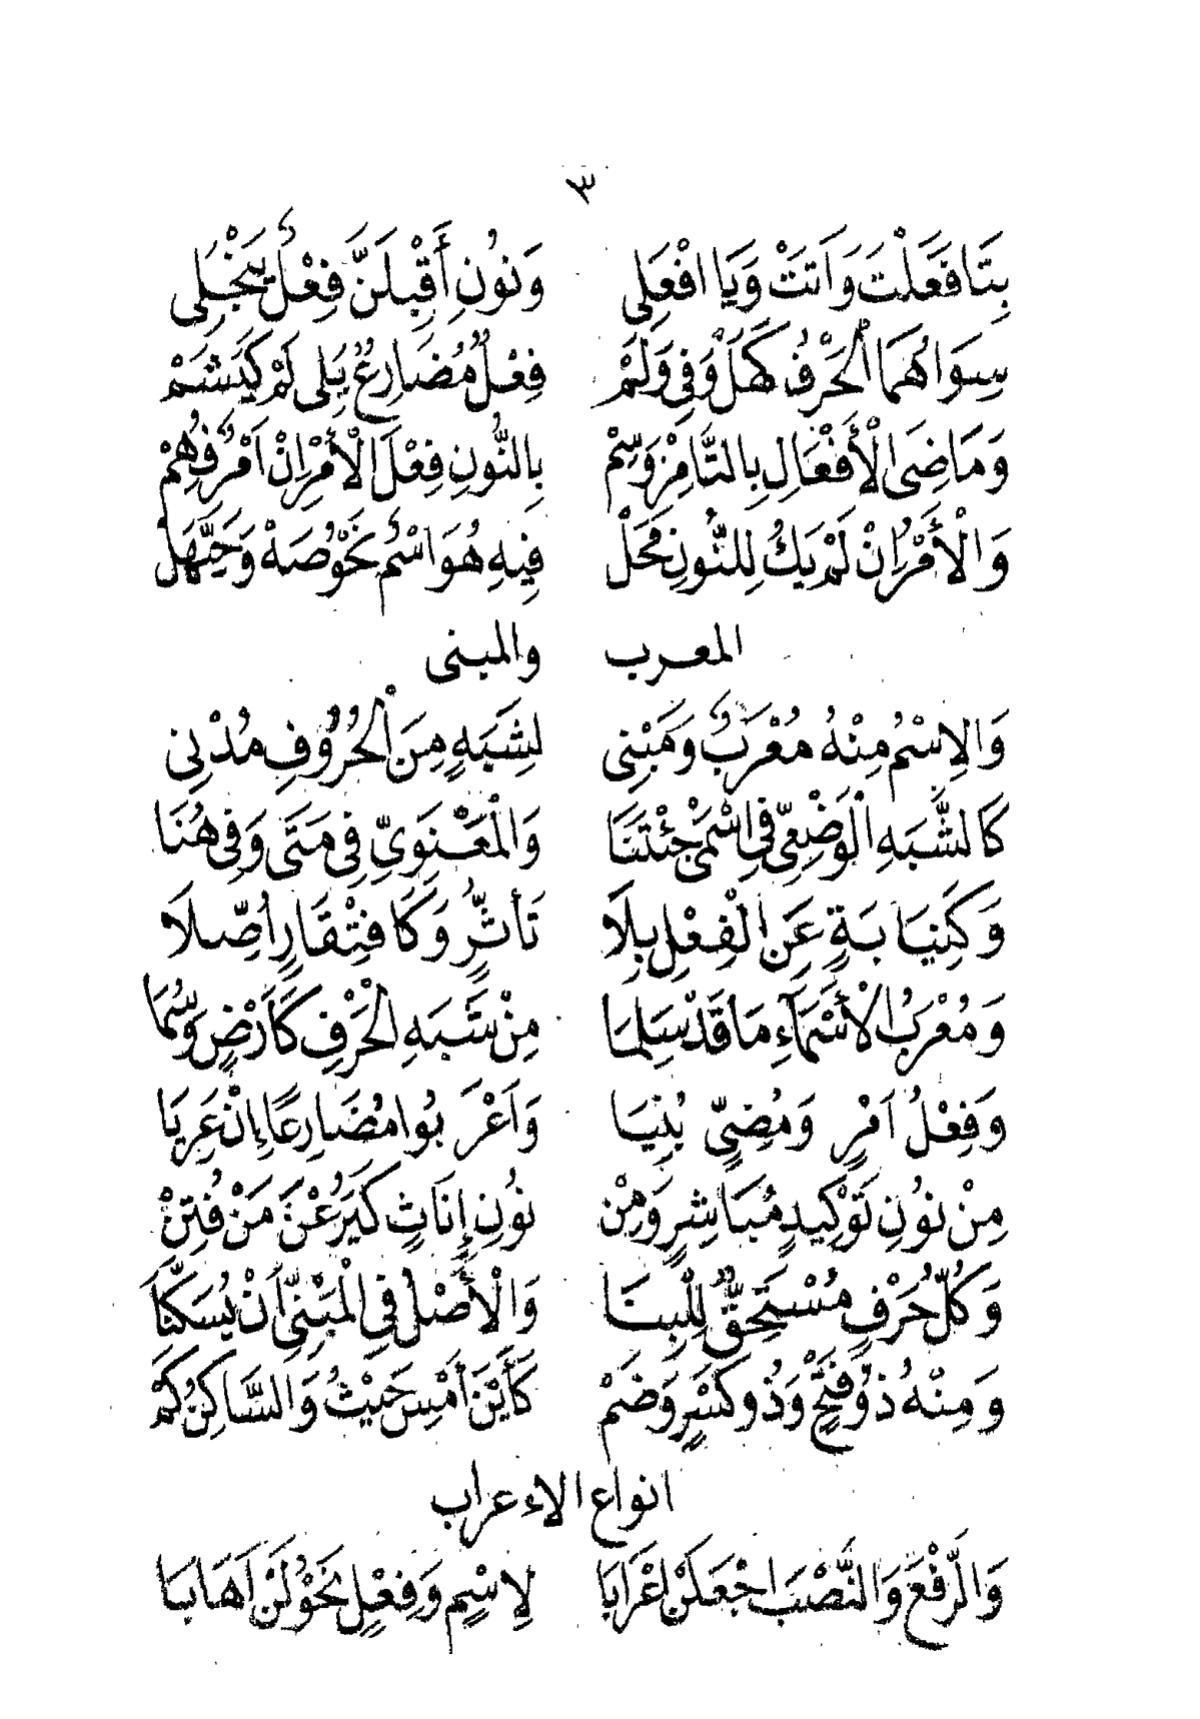 ٣
بِتَا فَعَلْتَ وَاَتَتْ وَيَا افْعَلِى وَنُونِ أَقْبِلَنَّ فِعْلٌ يَنْجَلِى
سِوَاهُمَا الْحَرْفُ كَهَلْ وَفِى وَلَمْ فِعْلٌ مُضَارِعٌ يَلِى لَمْ كَيَشَمْ
وَمَاضِىَ الْأَفْعَالِ بِالتَّا مِزْ وَسِمْ بِالنُّونِ فِعْلَ الْأَمْرِ اِنْ اَمْرٌ فُهِمْ
وَالْأَمْرُ اِنْ لَمْ يَكُ لِلنُّونِ مَحَلْ فِيهِ هُوَ اسْمٌ نَحْوُ صَهْ وَحَيَّهَلْ
المعرب والمبنى
وَالِاسْمُ مِنْهُ مُعْرَبٌ وَمَبْنِى لِشَبَهٍ مِنَ الْحُرُوفِ مُدْنِى
كَالشَّبَهِ الْوَضْعِىِّ فِى اسْمَىْ جِئْتَنَا وَالْمَعْنَوِىِّ فِى مَتَى وَفِى هُنَا
وَكَنِيَابَةٍ عَنِ الْفِعْلِ بِلَا تَأَثُّرٍ وَكَافْتِقَارٍ اُصِّلَا
وَمُعْرَبُ الْأَسْمَآءِ مَا قَدْ سَلِمَا مِنْ شَبَهِ الْحَرْفِ كَاَرْضٍ وَسُمَا
وَفِعْلُ اَمْرٍ وَمُضِىٍّ بُنِيَا وَاَعْرَبُوا مُضَارِعًا اِنْ عَرِيَا
مِنْ نُونِ تَوْكِيدٍ مُبَاشِرٍ وَمِنْ نُونِ إِنَاثٍ كَيَرُعْنَ مَنْ فُتِنْ
وَكُلُّ حَرْفٍ مُسْتَحِقٌّ لِلْبِنَا وَالْأَصْلُ فِى الْمَبْنِىِّ اَنْ يُسَكَّنَا
وَمِنْهُ ذُو فَتْحٍ وَذُو كَسْرٍ وَضَمْ كَأَيْنَ اَمْسِ حَيْثُ وَالسَّاكِنُ كَمْ
انواع الاءعراب
وَالرَّفْعَ وَالنَّصْبَ اجْعَلَنْ اِعْرَابَا لِاسْمٍ وَفِعْلٍ نَحْوُ لَنْ اَهَابَا